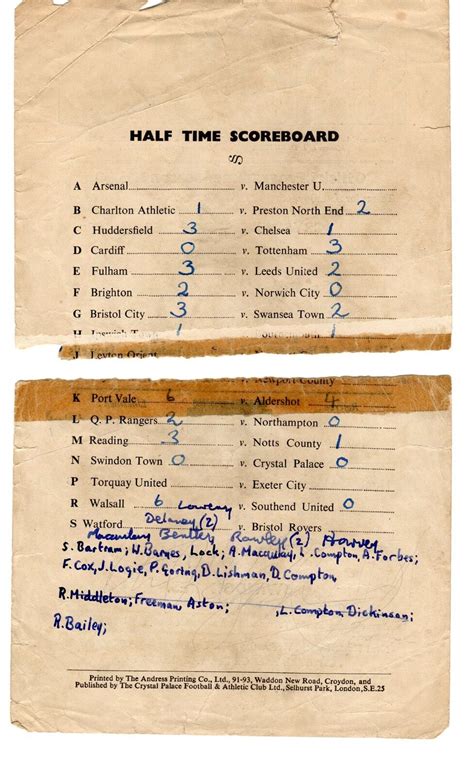 HALF TIME SCOREBOARD
A Arsenal v. Manchester U.
B Charlton Athletic 1 v. Preston North End 2
C Huddersfield 3 v. Chelsea 1
D Cardiff 0 v. Tottenham 3
E Fulham 3 v. Leeds United 2
F Brighton 2 v. Norwich City 0
G Bristol City 3 v. Swansea Town 2
H 1 1
J Leyton Orient
v. Newport County
K Port Vale 6 v. Aldershot 4
L Q. P. Rangers 2 v. Northampton 0
M Reading 3 v. Notts County 1
N Swindon Town 0 v. Crystal Palace 0
P Torquay United v. Exeter City
R Walsall 6 v. Southend United 0
S Watford Delaney (2) v. Bristol Rovers
Macaulay Bentley Rowley (2)
S. Bartram; W. Barnes, Lock; A. Macaulay, L. Compton, A. Forbes;
F. Cox, J. Logie, P. Goring, D. Lishman, D. Compton
R. Middleton; Freeman, Aston; ; L. Compton, Dickinson;
R. Bailey;
Printed by The Andress Printing Co., Ltd., 91-93, Waddon New Road, Croydon, and
Published by The Crystal Palace Football & Athletic Club Ltd., Selhurst Park, London, S.E.25